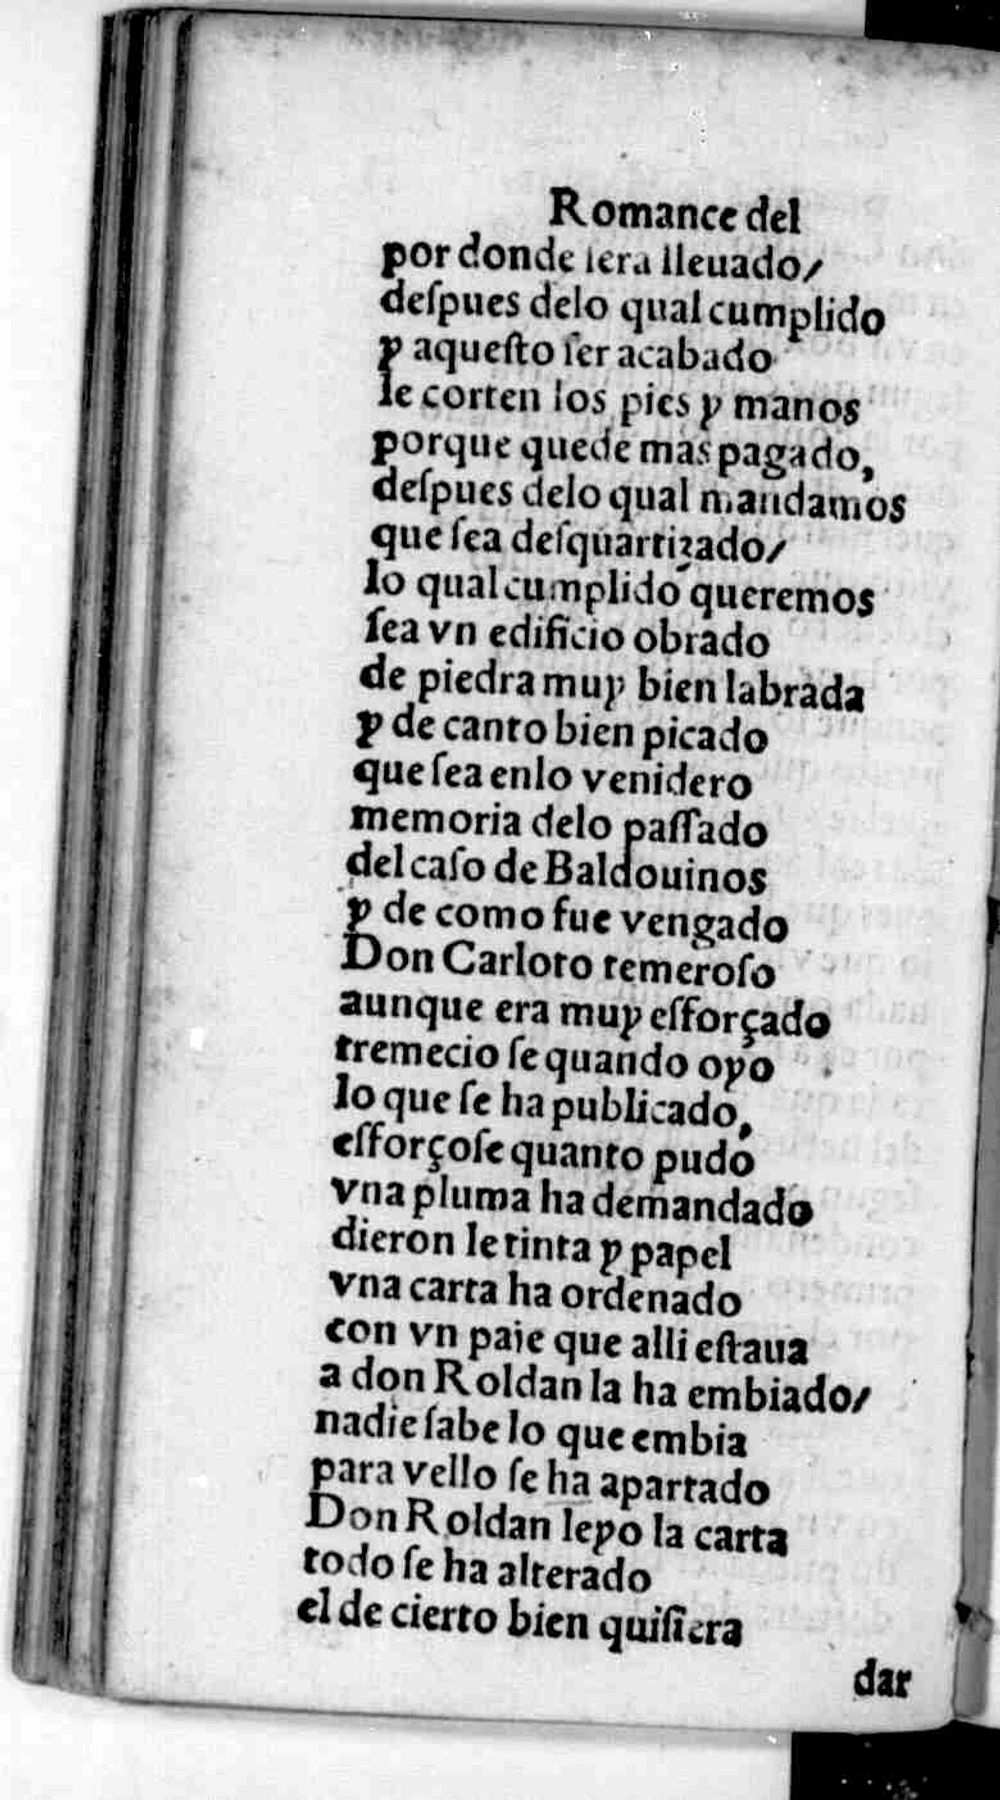 Romance del
por donde sera lleuado/
deſpues delo qual cumplido
y aqueſto ſer acabado
le corten los pies y manos
porque quede mas pagado,
deſpues delo qual mandamos
que ſea deſquartizado/
lo qual cumplido queremos
ſea vn edificio obrado
de piedra muy bien labrada
y de canto bien picado
que ſea enlo venidero
memoria delo paſſado
del caſo de Baldouinos
y de como fue vengado
Don Carloto temeroſo
aunque era muy eſforçado
tremecio ſe quando oyo
lo que ſe ha publicado,
eſforçoſe quanto pudo
vna pluma ha demandado
dieron le tinta y papel
vna carta ha ordenado
con vn paje que alli eſtaua
a don Roldan la ha embiado/
nadie ſabe lo que embia
para vello ſe ha apartado
Don Roldan leyo la carta
todo ſe ha alterado
el de cierto bien quiſiera
dar